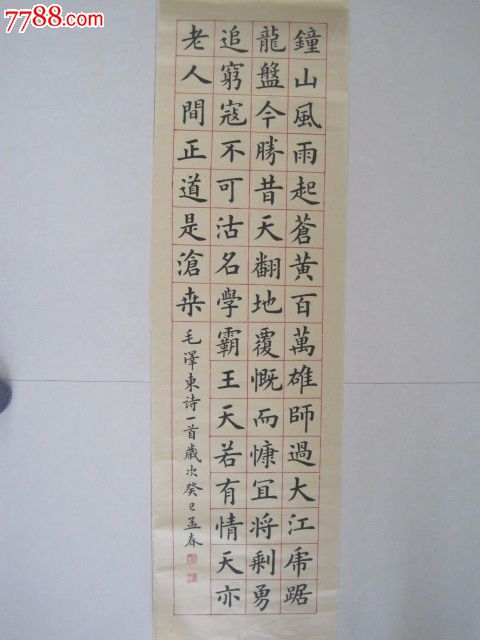 7788.com
鐘山風雨起蒼黃百萬雄師過大江虎踞
龍盤今勝昔天翻地覆慨而慷宜將剩勇
追窮寇不可沽名學霸王天若有情天亦
老人間正道是滄桒
毛澤東詩一首歲次癸巳孟春